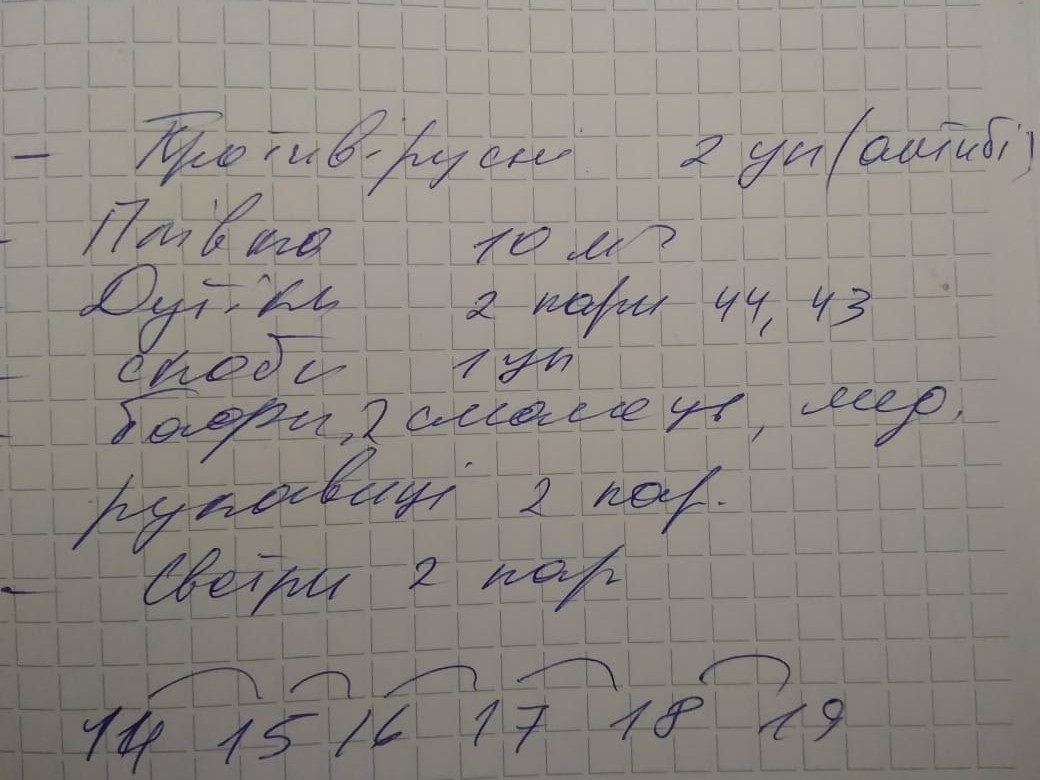 - Противірусні 2 уп (антибі)
- Плівка 10 м
- Дутіки 2 пари 44, 43
- скоби 1 уп
- смалець, мед.
рукавиці 2 пар.
- Светри 2 пар
14 15 16 17 18 19